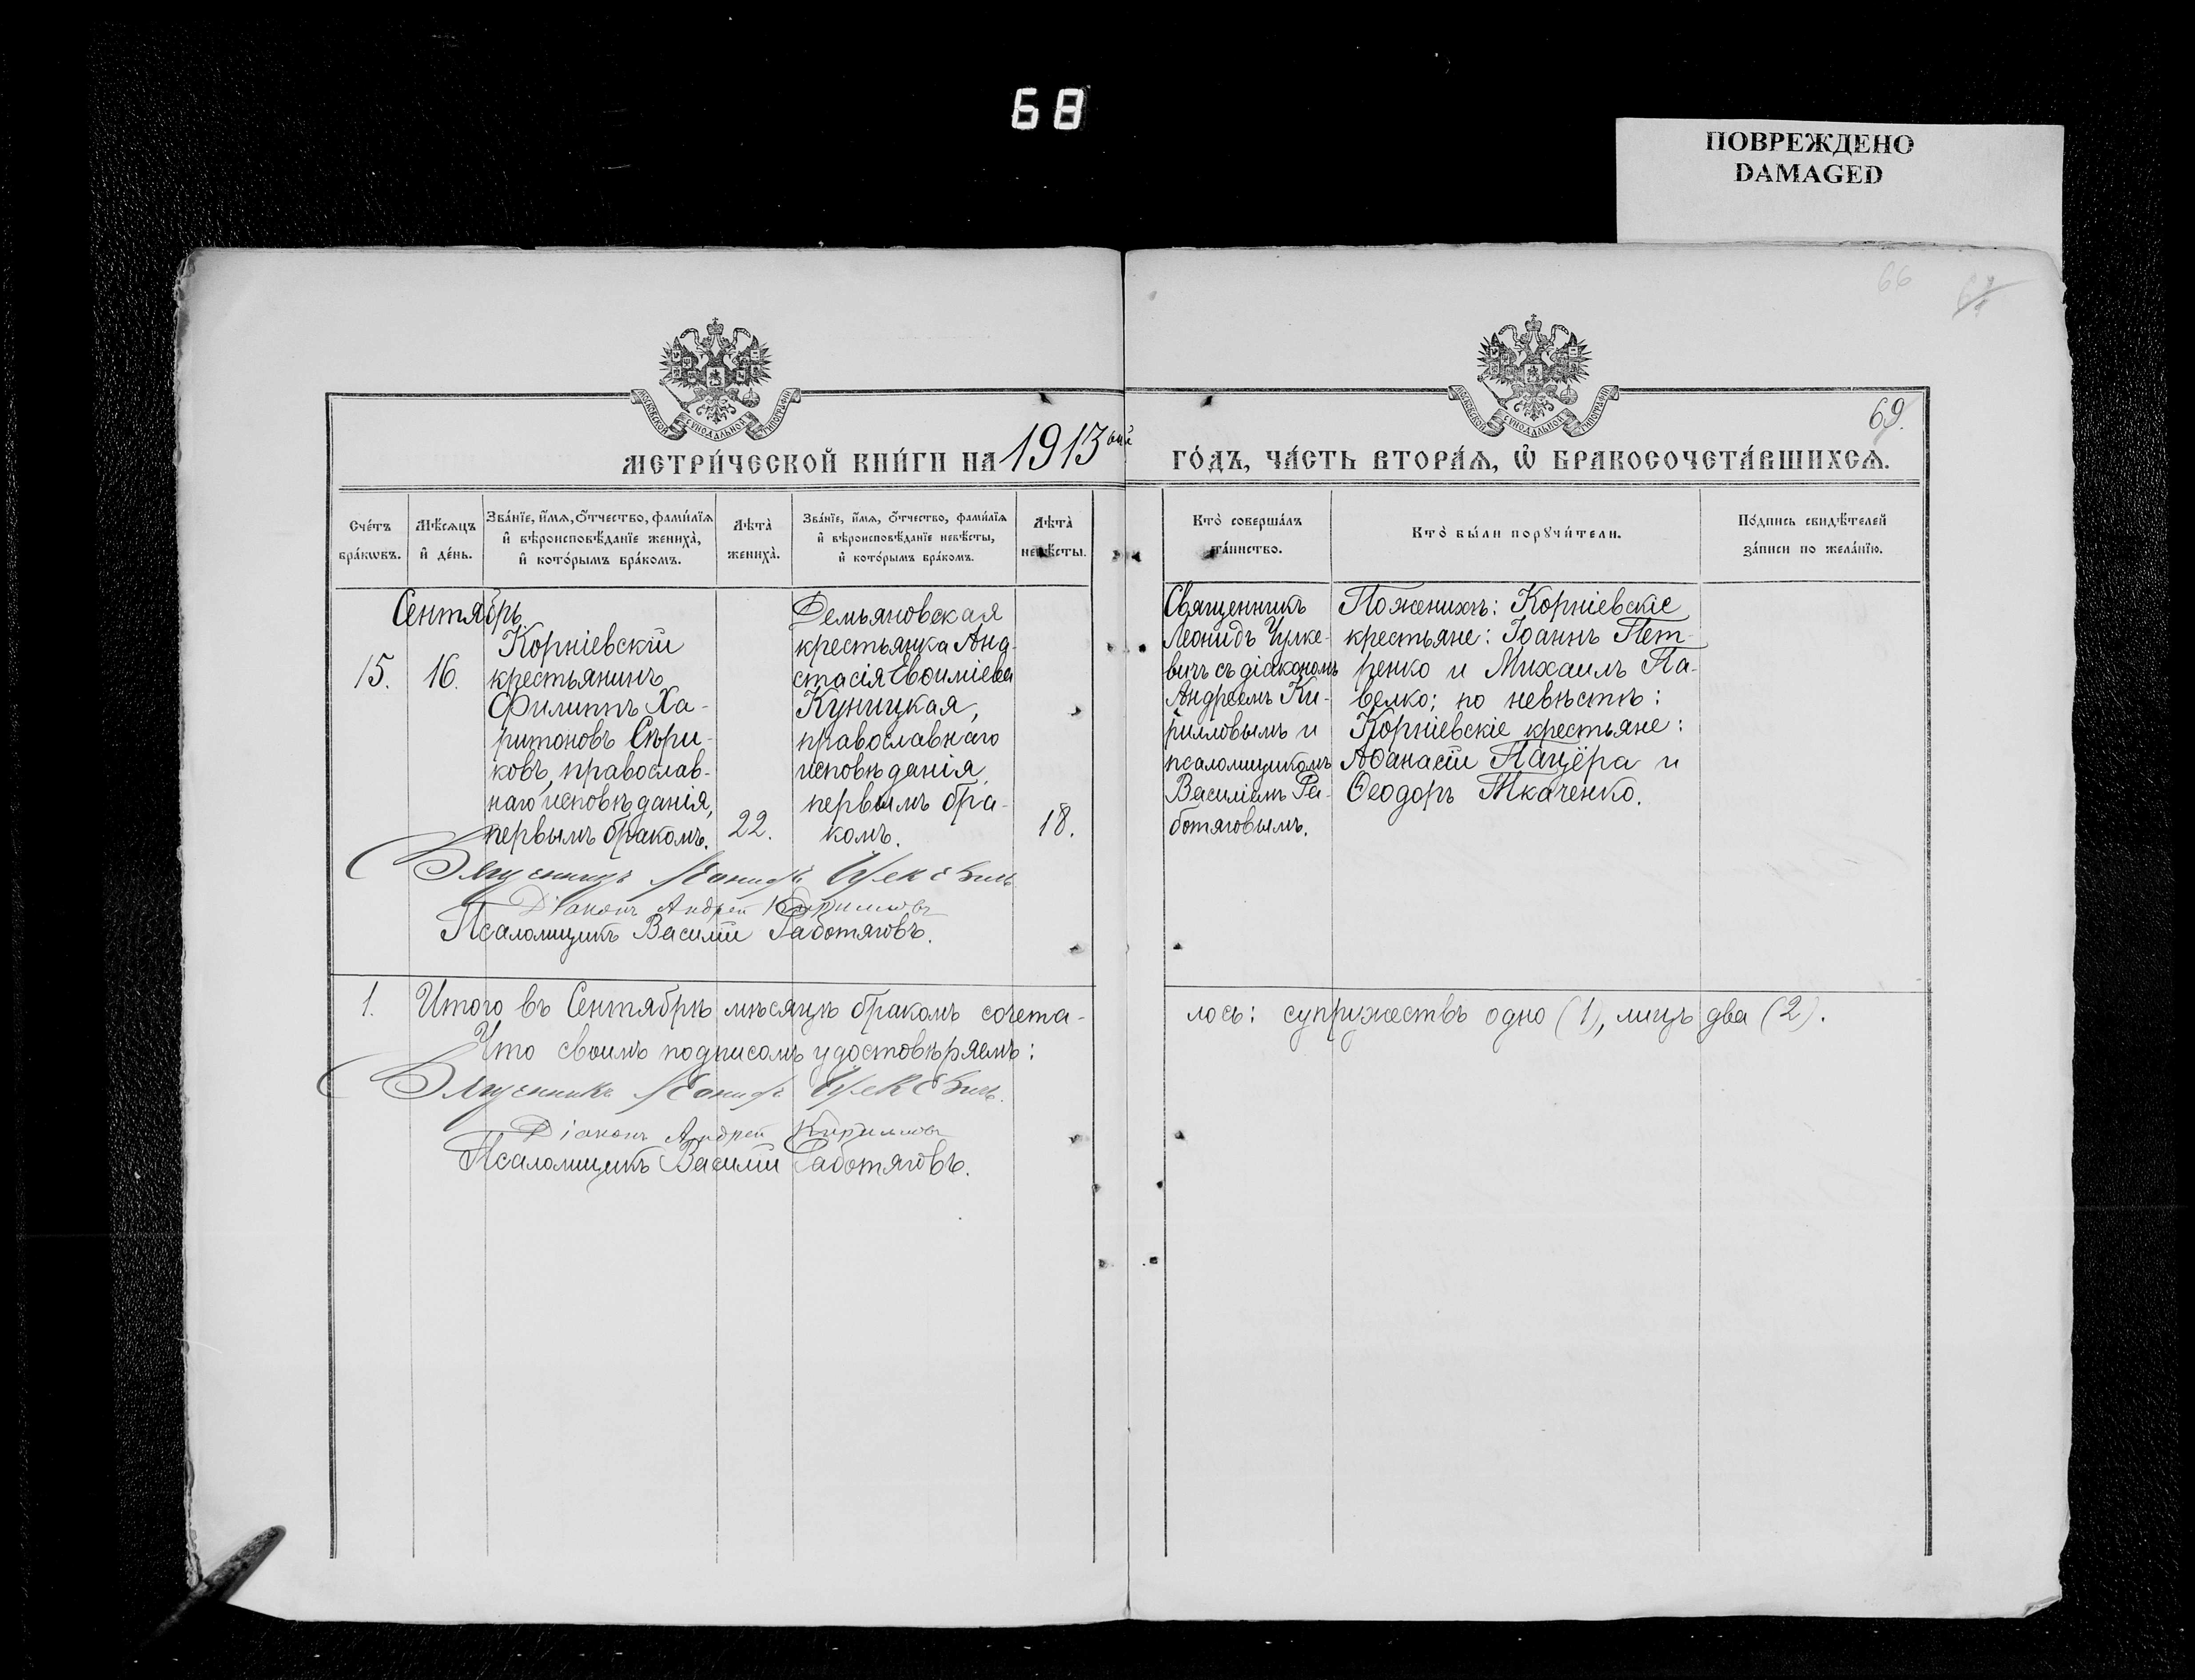 68
ПОВРЕЖДЕНО
DAMAGED
66
МОСКОВСКОЙ СѴНОДАЛЬНОЙ ТИПОГРАФІИ
МОСКОВСКОЙ СѴНОДАЛЬНОЙ ТИПОГРАФІИ
69.
МЕТРИ́ЧЕСКОЙ КНИ́ГИ НА 1913 ый
ГО́ДЪ, ЧА́СТЬ ВТОРА́Ѧ, Ѡ҆ БРАКОСОЧЕТА́ВШИХСѦ.
Сче́тъ
бра́кѡвъ.
Мѣ́сѧцъ
и҆ де́нь.
Зва́нїе, и҆́мѧ, ѻ҆́тчество, фами́лїѧ
и҆ вѣроисповѣ́данїе жениха̀,
и҆ кото́рымъ бра́комъ.
Лѣта̀
жениха̀.
Зва́нїе, и҆́мѧ, ѻ҆́тчество, фами́лїѧ
и҆ вѣроисповѣ́данїе невѣ́сты,
и҆ кото́рымъ бра́комъ.
Лѣта̀
невѣ́сты.
Кто̀ соверша́лъ
та́инство.
Кто̀ бы́ли порꙋчи́тели.
По́дпись свидѣ́телей
за́писи по жела́нїю.
Сентябрь
15.
16.
Корніевскій
крестьянинъ
Филиппъ Ха-
ритоновъ Скри-
ковъ, православ-
наго исповѣданія,
первымъ бракомъ.
22.
Демьяновская
крестьянка Ана-
стасія Евѳиміева
Куницкая,
православнаго
исповѣданія,
первымъ бра-
комъ.
18.
Священникъ
Леонидъ Чулке-
вичъ съ діакономъ
Андреемъ Ки-
рилловымъ и
псаломщикомъ
Василіемъ Ра-
ботяговымъ.
По женихѣ: Корніевскіе
крестьяне: Іоаннъ Пет-
ренко и Михаилъ Па-
велко; по невѣстѣ:
Корніевскіе крестьяне:
Аѳанасій Пацёра и
Ѳеодоръ Ткаченко.
Священникъ Леонидъ
Діаконъ Андрей Кирилловъ
Псаломщикъ Василій Работяговъ.
1. Итого въ Сентябрѣ мѣсяцѣ бракомъ сочета-
лось: супружествъ одно (1), лицъ два (2).
Что своимъ подписомъ удостовѣряемъ:
Священникъ Леонидъ
Діаконъ Андрей Кирилловъ
Псаломщикъ Василій Работяговъ.